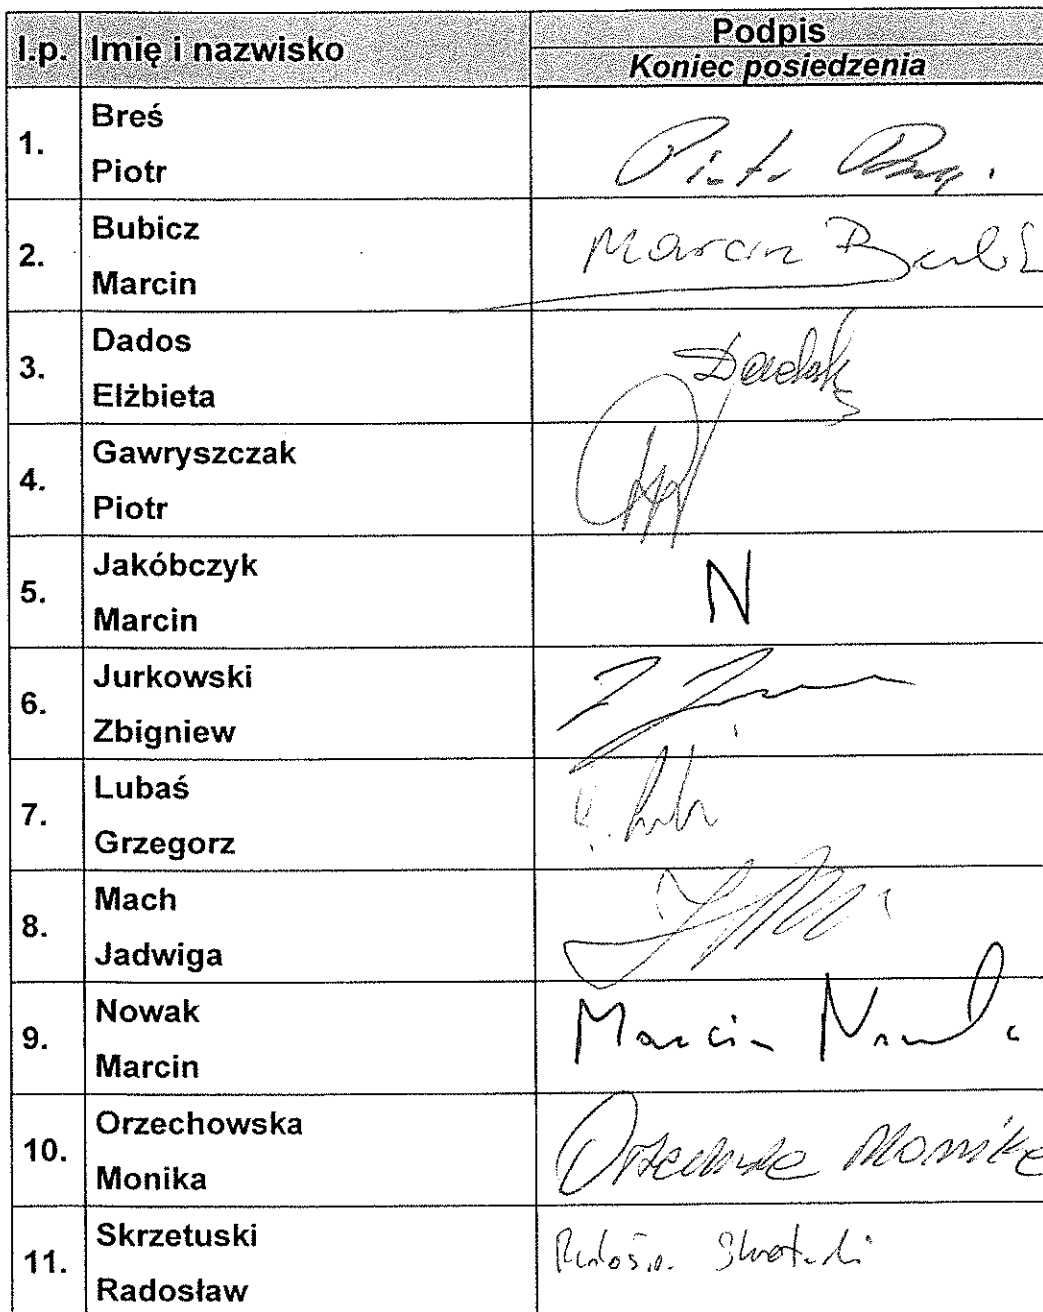 l.p. Imię i nazwisko Podpis
Koniec posiedzenia
1. Breś
Piotr
Piotr
2. Bubicz
Marcin
Marcin
3. Dados
Elżbieta
4. Gawryszczak
Piotr
5. Jakóbczyk
Marcin
N
6. Jurkowski
Zbigniew
7. Lubaś
Grzegorz
8. Mach
Jadwiga
9. Nowak
Marcin
Marcin Nowak
10. Orzechowska
Monika
Orzechowska Monika
11. Skrzetuski
Radosław